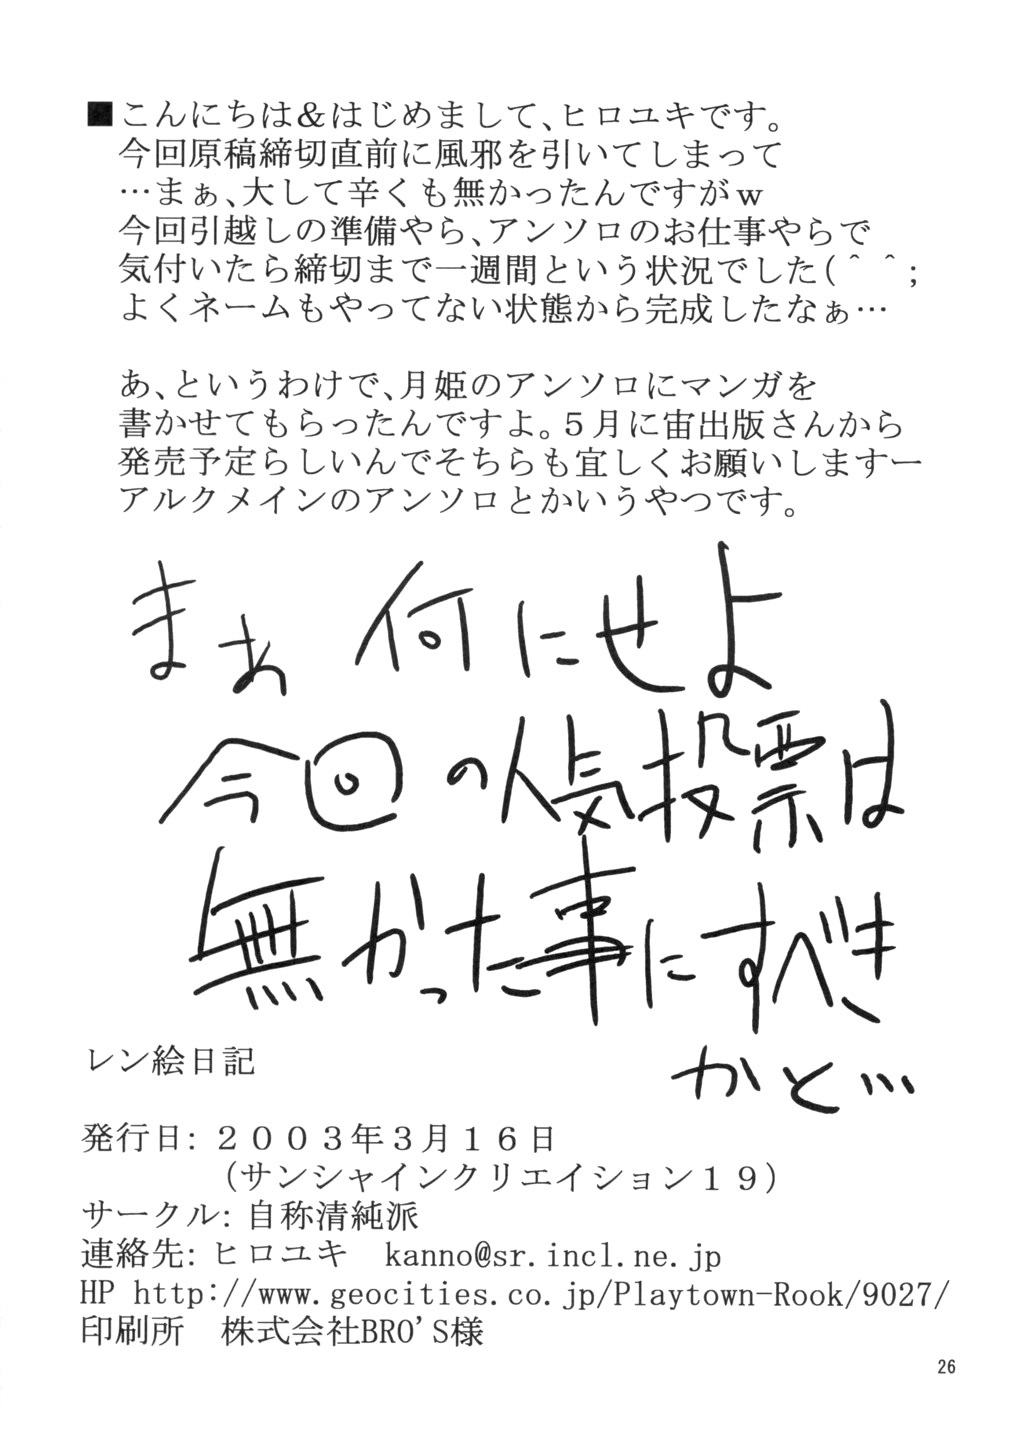 ■こんにちは＆はじめまして、ヒロユキです。
今回原稿締切直前に風邪を引いてしまって
…まぁ、大して辛くも無かったんですがｗ
今回引越しの準備やら、アンソロのお仕事やらで
気付いたら締切まで一週間という状況でした(＾＾;
よくネームもやってない状態から完成したなぁ…
あ、というわけで、月姫のアンソロにマンガを
書かせてもらったんですよ。５月に宙出版さんから
発売予定らしいんでそちらも宜しくお願いしますー
アルクメインのアンソロとかいうやつです。
まぁ何にせよ
今回の人気投票は
無かった事にすべき
かと…
レン絵日記
発行日: ２００３年３月１６日
（サンシャインクリエイション１９）
サークル: 自称清純派
連絡先: ヒロユキ　kanno@sr.incl.ne.jp
HP http://www.geocities.co.jp/Playtown-Rook/9027/
印刷所　株式会社BRO'S様
26